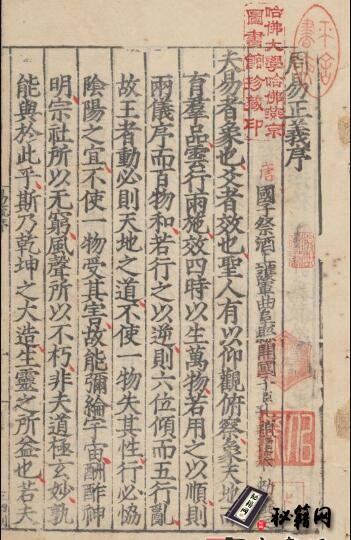 哈佛大學哈佛燕京
圖書館珍藏印
周易正義序
唐 國子祭酒上護軍曲阜縣開國子臣
夫易者象也爻者效也聖人有以仰觀俯察象天地
育羣品雲行雨施效四時以生萬物若用之以順則
兩儀序而百物和若行之以逆則六位傾而五行亂
故王者動必則天地之道不使一物失其性行必恊
陰陽之宜不使一物受其害故能彌綸宇宙酬酢神
明宗社所以无窮風聲所以不朽非夫道極玄妙孰
能與於此乎斯乃乾坤之大造生靈之所益也若夫
秘籍网